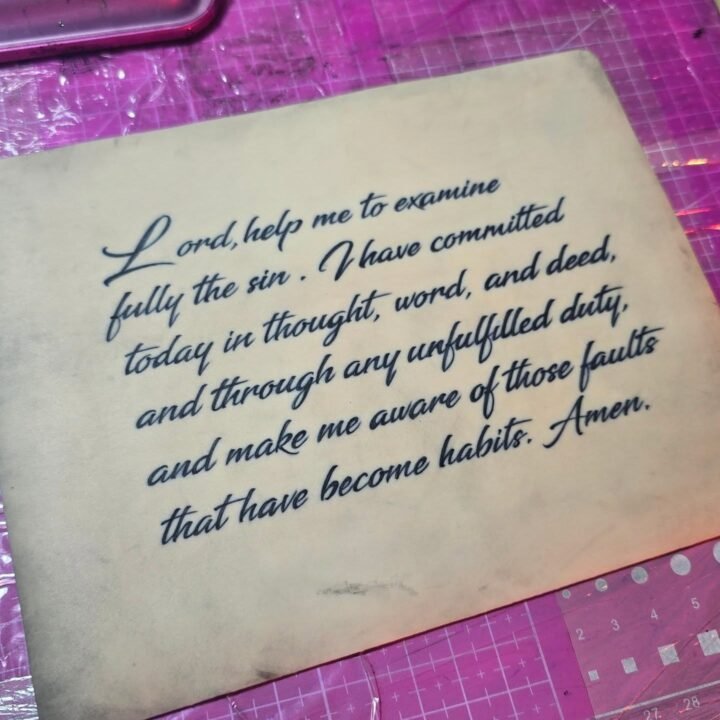 Lord, help me to examine
fully the sin . I have committed
today in thought, word, and deed,
and through any unfulfilled duty,
and make me aware of those faults
that have become habits. Amen.
2 3 4 5
27 28